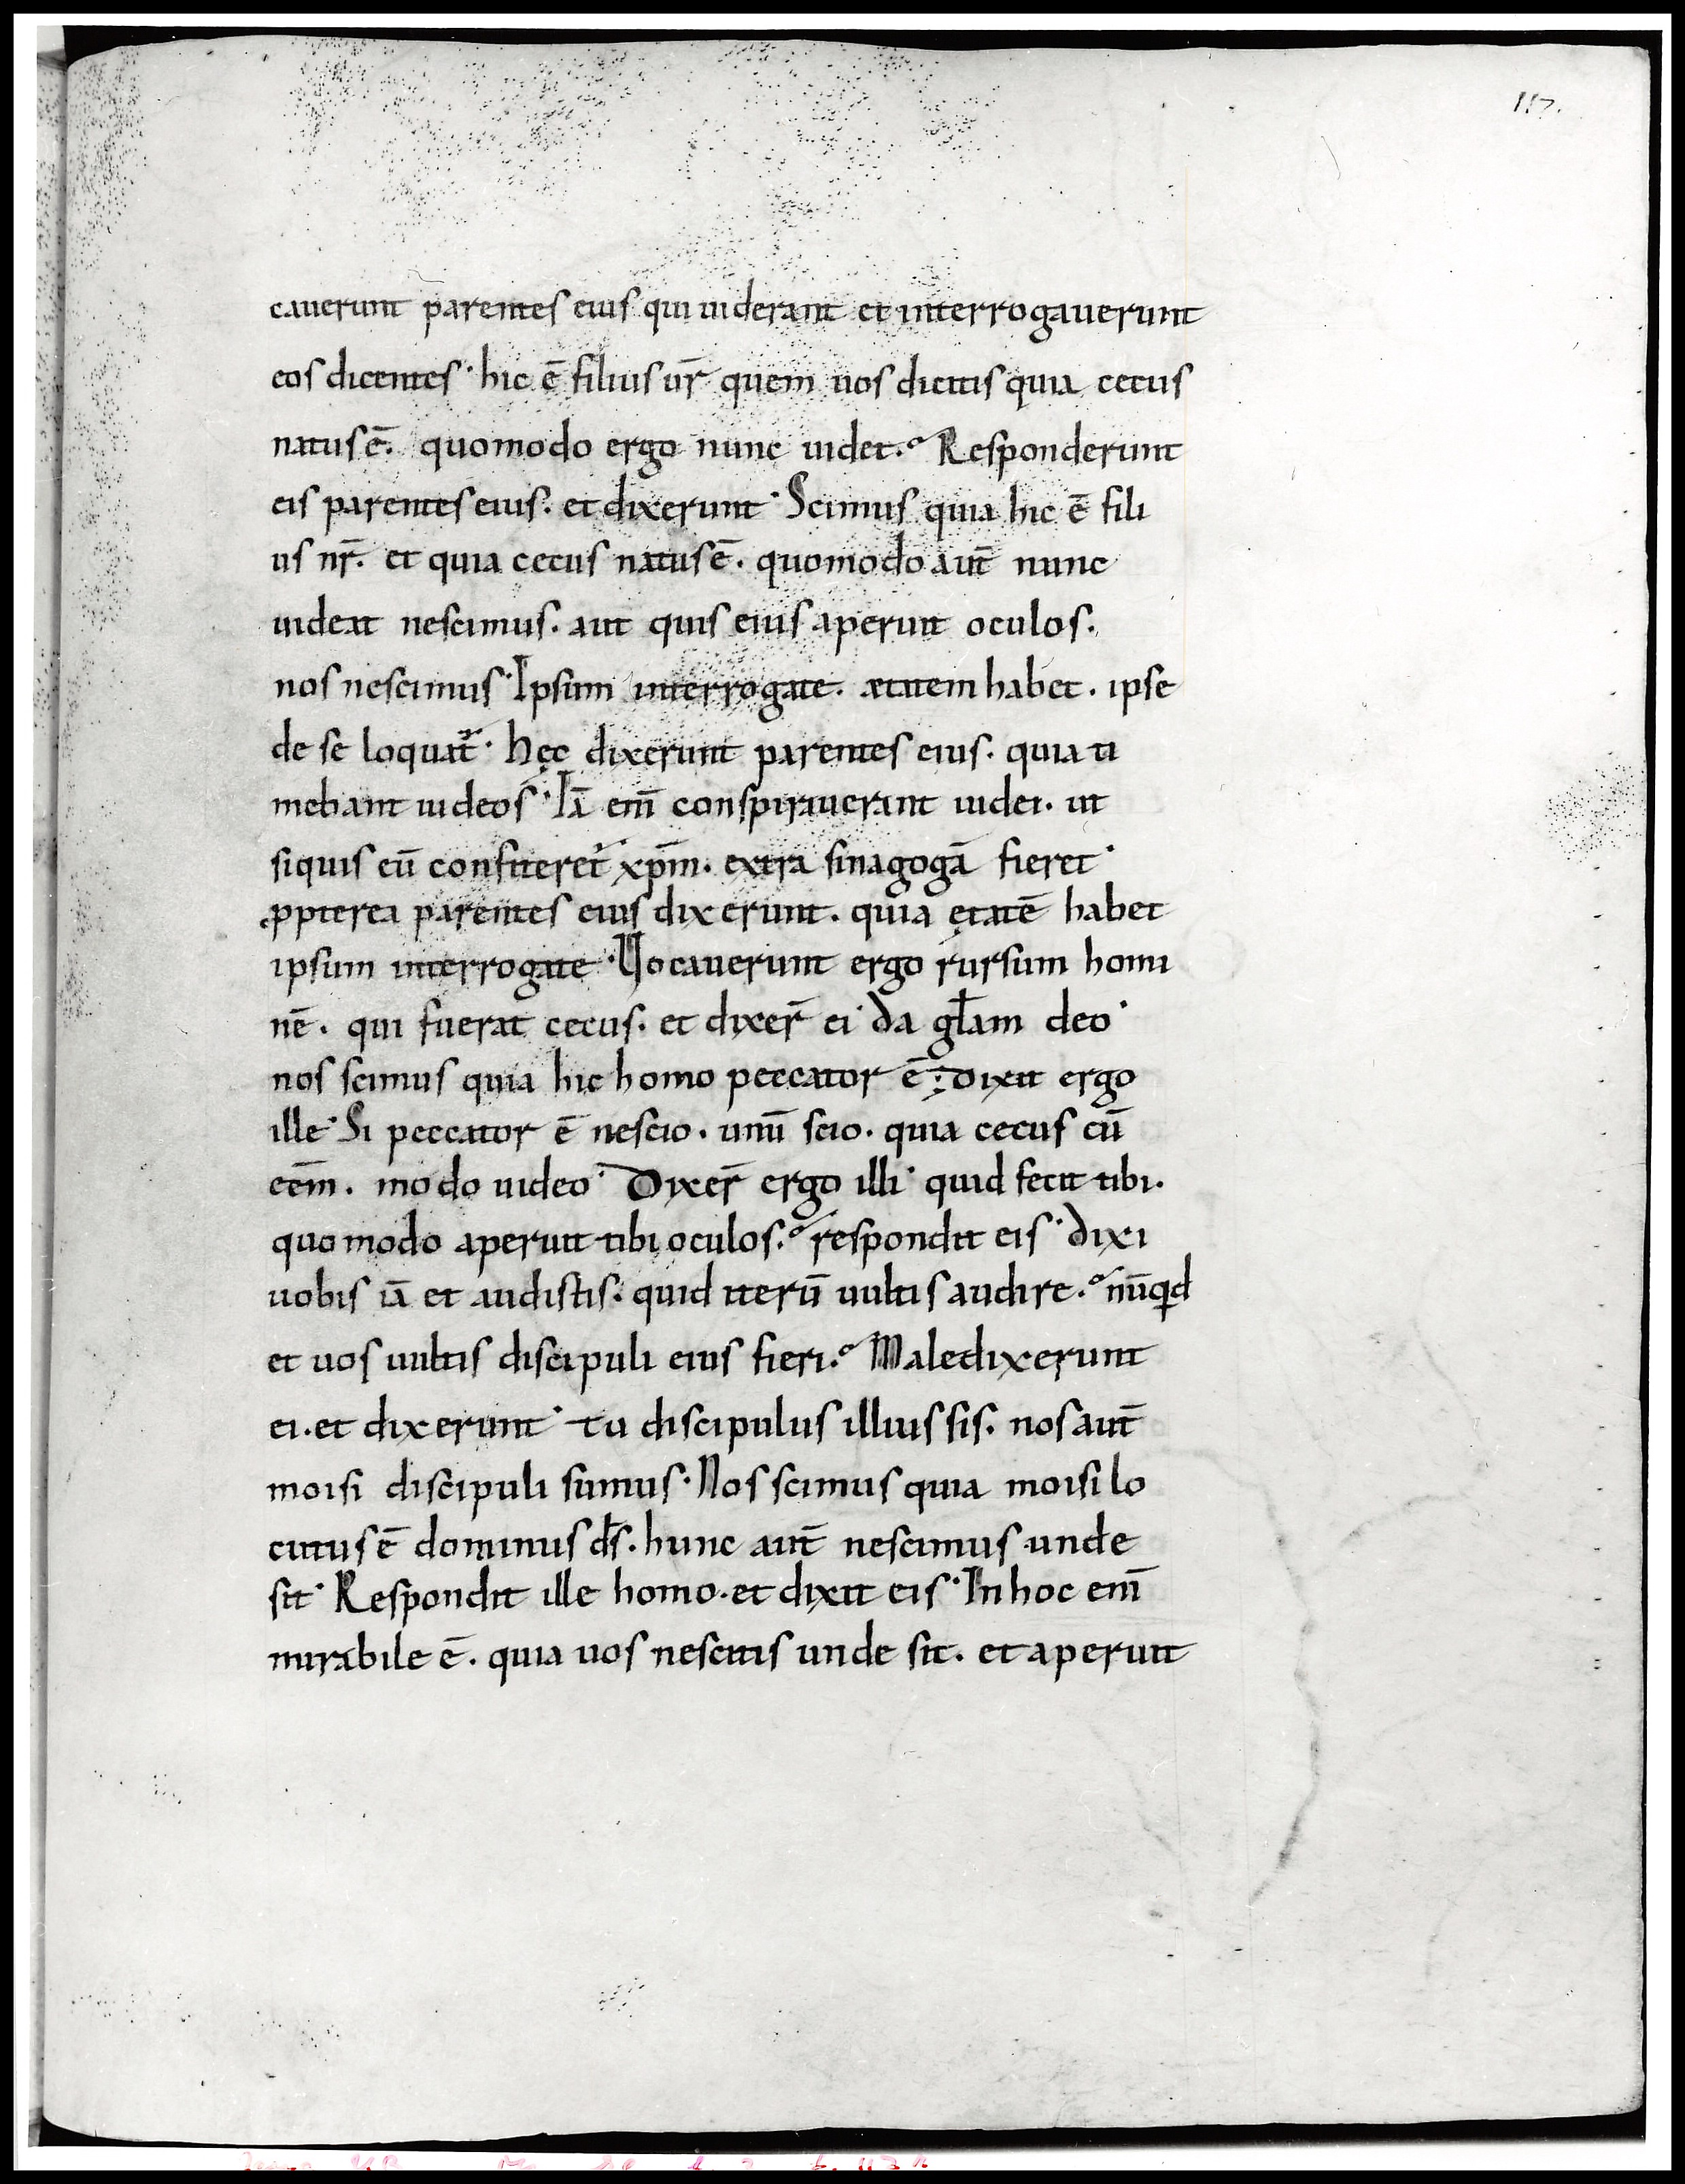 117.
cauerunt parentes eius qui uiderant et interrogauerunt
eos dicentes· hic ē filius ur̄ quem uos dicitis quia cecus
natus ē. quomodo ergo nunc uidet.° Responderunt
eis parentes eius. et dixerunt· Scimus quia hic ē fili
us nr̄. et quia cecus natus ē. quomodo aut̄ nunc
uideat nescimus. aut quis eius aperuit oculos.
nos nescimus· Ipsum interrogate. ætatem habet. ipse
de se loquat᷑· hęc dixerunt parentes eius. quia ti
mebant iudeos· Iā eni̅ conspirauerant iudei. ut
siquis eū confiteret᷑ xp̄m. extra sinagogā fieret·
ꝓpterea parentes eius dixerunt. quia ętatē habet
ipsum interrogate· Uocauerunt ergo rursum homi
nē. qui fuerat cecus. et dixer̄ ei· da gl̄am deo·
nos scimus quia hic homo peccator ē; dixit ergo
ille· Si peccator ē nescio. unū scio. quia cecus cū
eēm. modo uideo· Dixer̄ ergo illi· quid fecit tibi.
quomodo aperuit tibi oculos.° respondit eis· dixi
uobis iā et audistis. quid iterū uultis audire.° nūqd
et uos uultis discipuli eius fieri.° Maledixerunt
ei. et dixerunt· tu discipulus illius sis. nos aut̄
moisi discipuli sumus· Nos scimus quia moisi lo
cutus ē dominus ds̄. hunc aut̄ nescimus unde
sit· Respondit ille homo. et dixit eis· In hoc eni̅
mirabile ē. quia uos nescitis unde sit. et aperuit